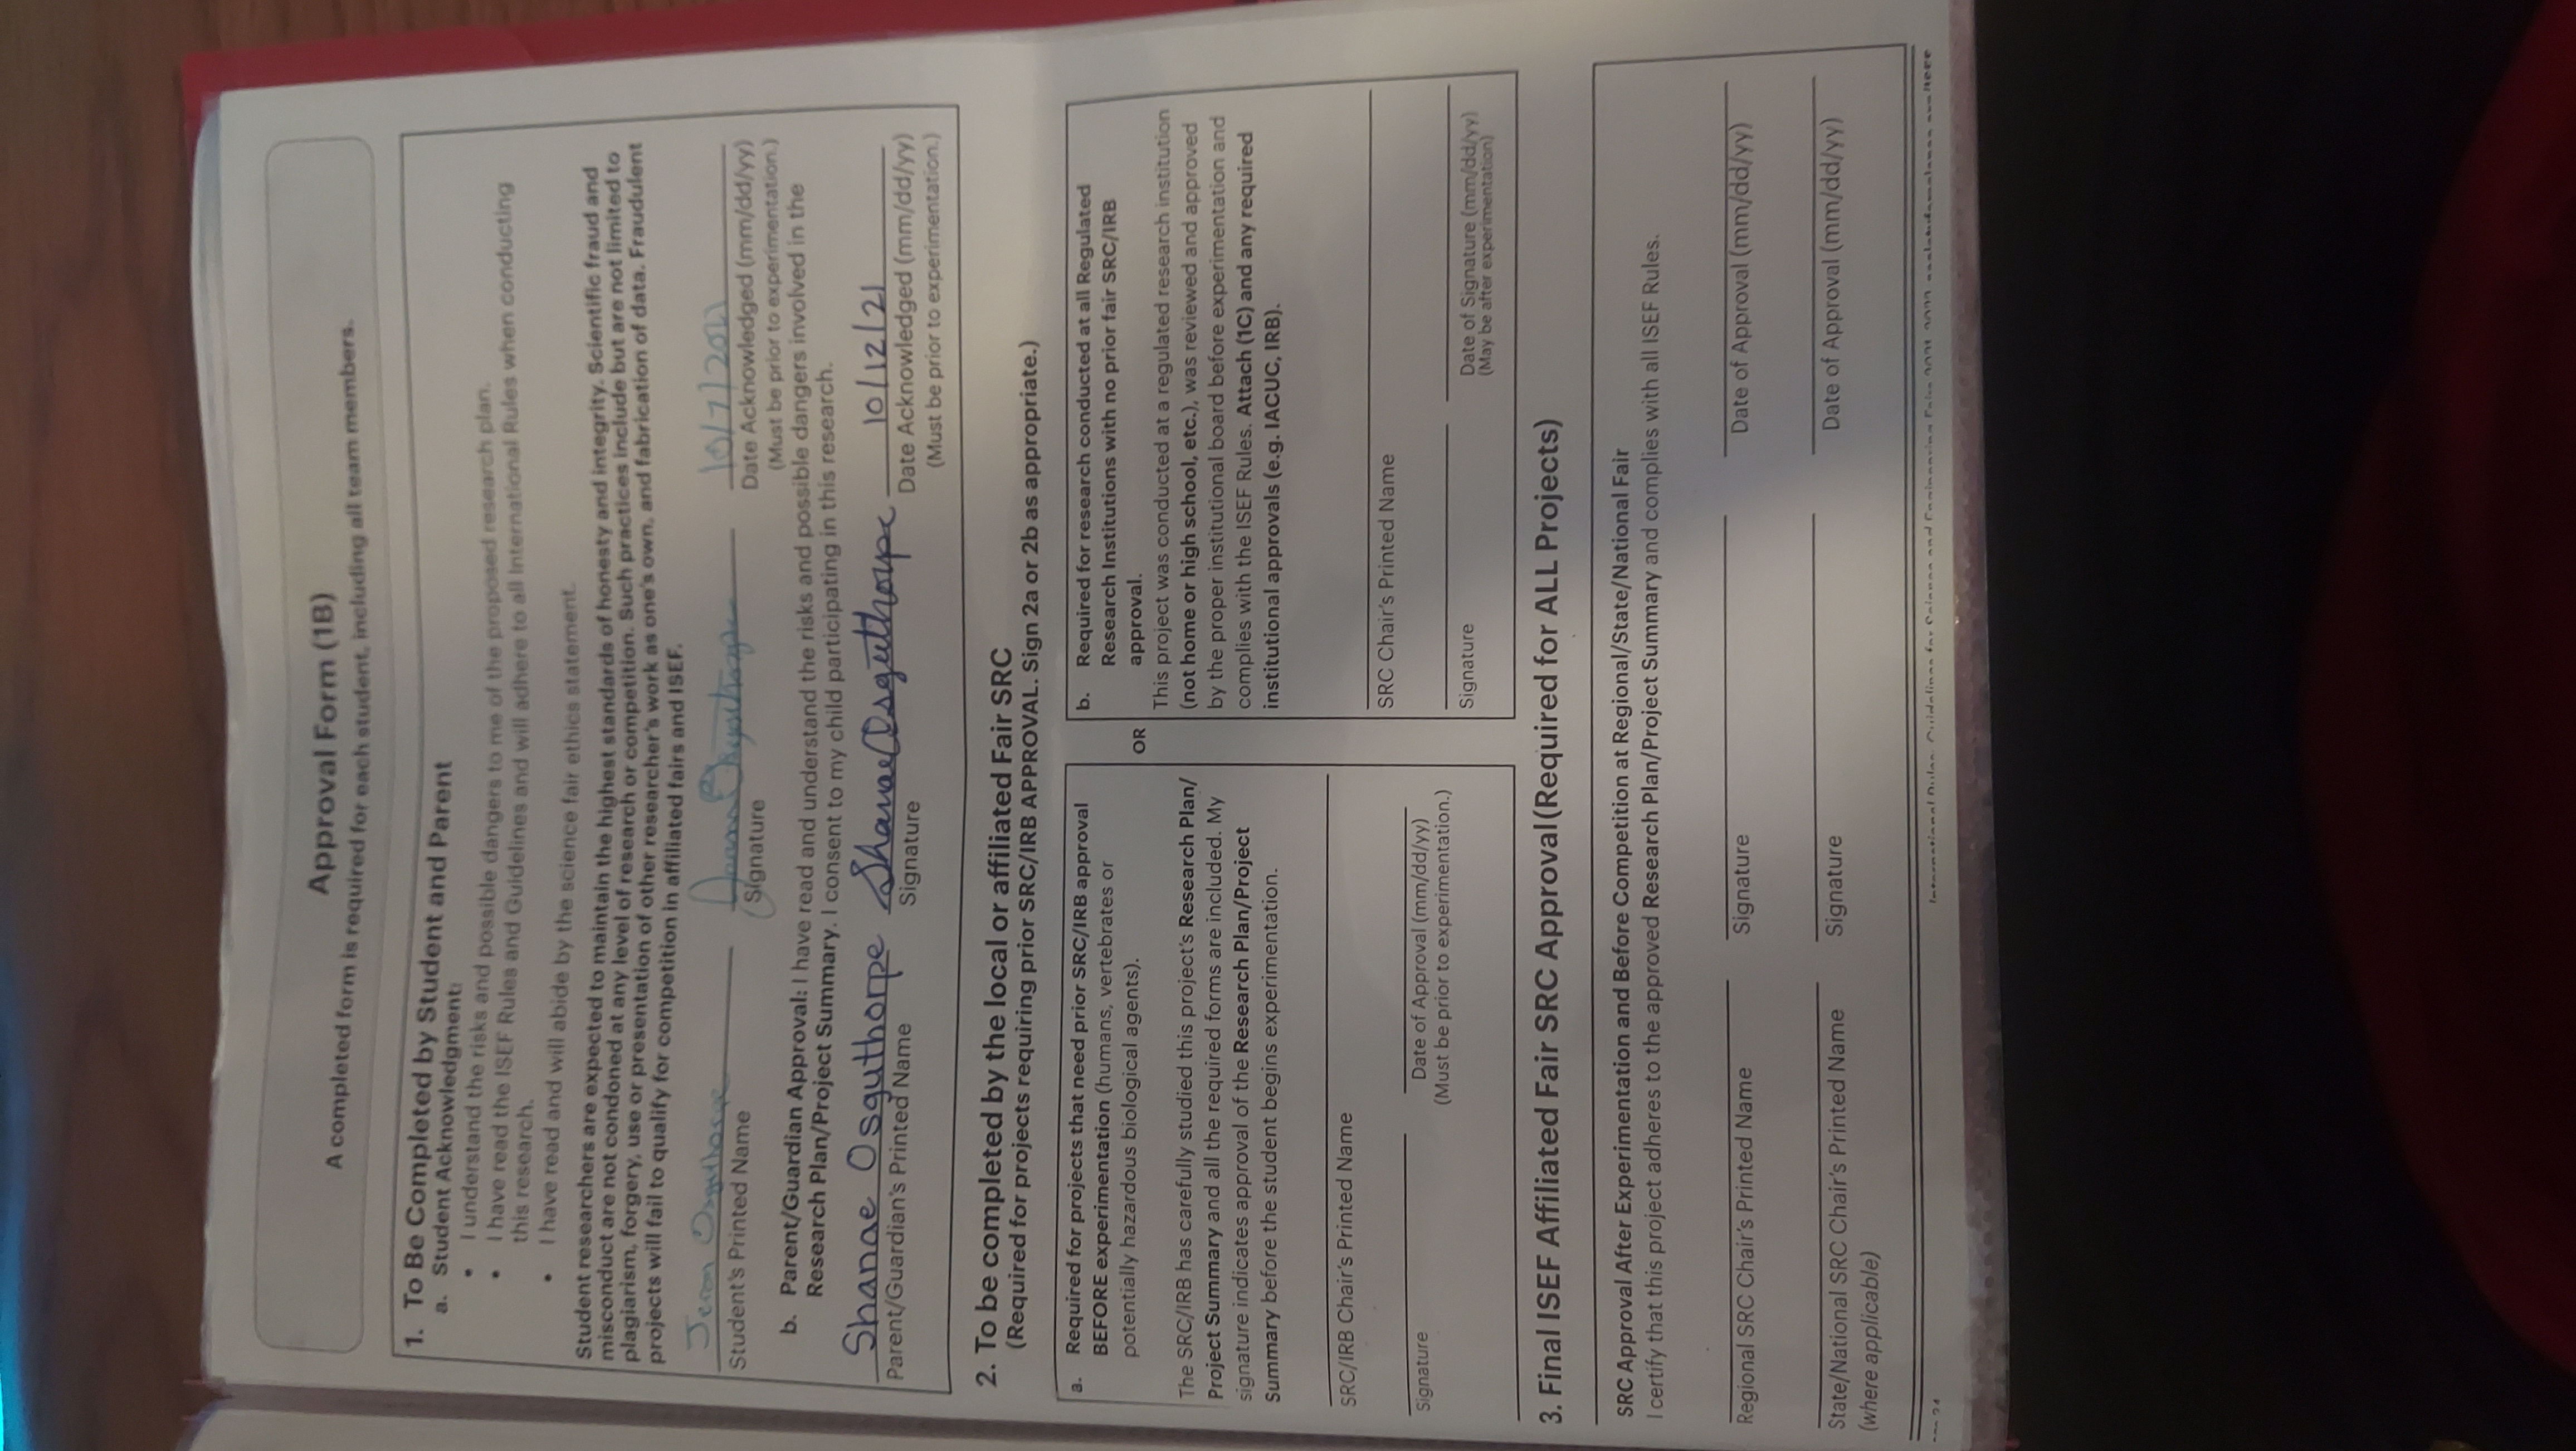 Approval Form (1B)
A completed form is required for each student, including all team members.
1. To Be Completed by Student and Parent
a. Student Acknowledgment:
• I understand the risks and possible dangers to me of the proposed research plan.
• I have read the ISEF Rules and Guidelines and will adhere to all International Rules when conducting
this research.
• I have read and will abide by the science fair ethics statement.
Student researchers are expected to maintain the highest standards of honesty and integrity. Scientific fraud and
misconduct are not condoned at any level of research or competition. Such practices include but are not limited to
plagiarism, forgery, use or presentation of other researcher's work as one's own, and fabrication of data. Fraudulent
projects will fail to qualify for competition in affiliated fairs and ISEF.
Osguthorpe Osguthorpe 10/7/2021
Student's Printed Name Signature Date Acknowledged (mm/dd/yy)
(Must be prior to experimentation.)
b. Parent/Guardian Approval: I have read and understand the risks and possible dangers involved in the
Research Plan/Project Summary. I consent to my child participating in this research.
Shanae Osguthorpe Shanae Osguthorpe 10/12/21
Parent/Guardian's Printed Name Signature Date Acknowledged (mm/dd/yy)
(Must be prior to experimentation.)
2. To be completed by the local or affiliated Fair SRC
(Required for projects requiring prior SRC/IRB APPROVAL. Sign 2a or 2b as appropriate.)
a. Required for projects that need prior SRC/IRB approval
BEFORE experimentation (humans, vertebrates or
potentially hazardous biological agents).
The SRC/IRB has carefully studied this project's Research Plan/
Project Summary and all the required forms are included. My
signature indicates approval of the Research Plan/Project
Summary before the student begins experimentation.
SRC/IRB Chair's Printed Name
Signature Date of Approval (mm/dd/yy)
(Must be prior to experimentation.)
OR
b. Required for research conducted at all Regulated
Research Institutions with no prior fair SRC/IRB
approval.
This project was conducted at a regulated research institution
(not home or high school, etc.), was reviewed and approved
by the proper institutional board before experimentation and
complies with the ISEF Rules. Attach (1C) and any required
institutional approvals (e.g. IACUC, IRB).
SRC Chair's Printed Name
Signature Date of Signature (mm/dd/yy)
(May be after experimentation)
3. Final ISEF Affiliated Fair SRC Approval (Required for ALL Projects)
SRC Approval After Experimentation and Before Competition at Regional/State/National Fair
I certify that this project adheres to the approved Research Plan/Project Summary and complies with all ISEF Rules.
Regional SRC Chair's Printed Name Signature Date of Approval (mm/dd/yy)
State/National SRC Chair's Printed Name Signature Date of Approval (mm/dd/yy)
(where applicable)